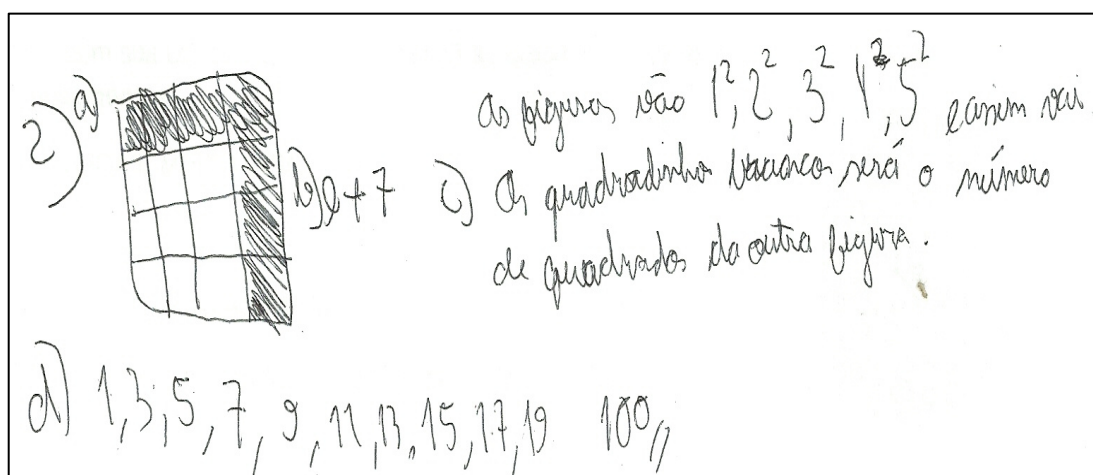 2) a)
b) 9+7
As figuras vão 1², 2², 3², 4², 5² e assim vai
c) Os quadradinhos brancos será o número
de quadrados da outra figura.
d) 1, 3, 5, 7, 9, 11, 13, 15, 17, 19 100//